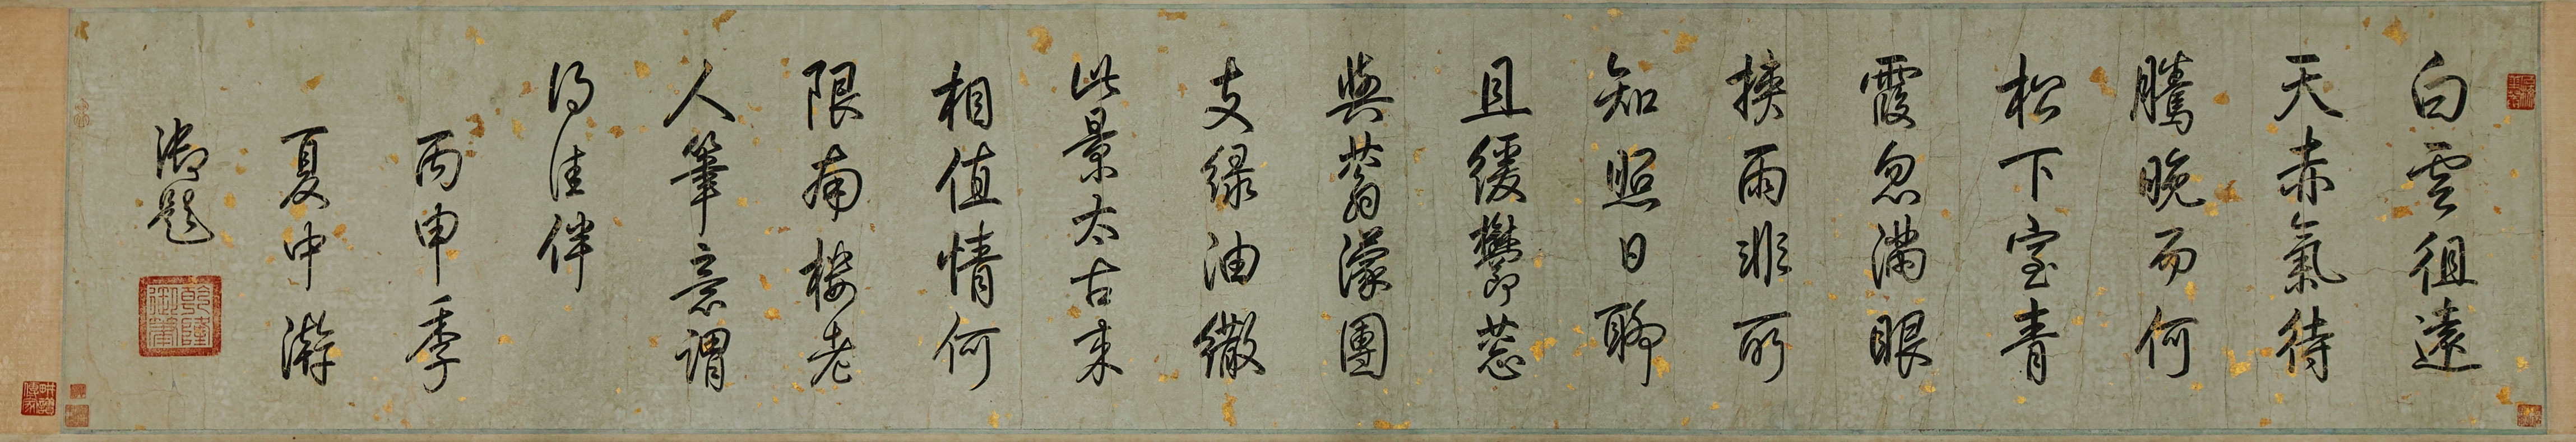 白雲徂遠
天赤氣待
騰晚而何
松下室青
霞忽滿眼
挾雨非所
知照日聊
且緩欝蔥
與蓊濛團
支綠油繖
此景太古來
相值情何
限南樓老
人筆意謂
得佳伴
丙申季
夏中澣
御題
乾隆御筆